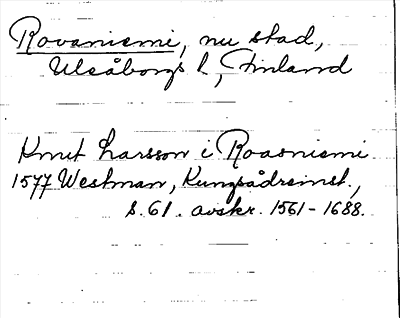 Rovaniemi, nu stad,
Uleåborgs l, Finland
Knut Larsson i Roasniemi
1577 Westman, Kungsådreinst.,
s. 61. avskr. 1561-1688.